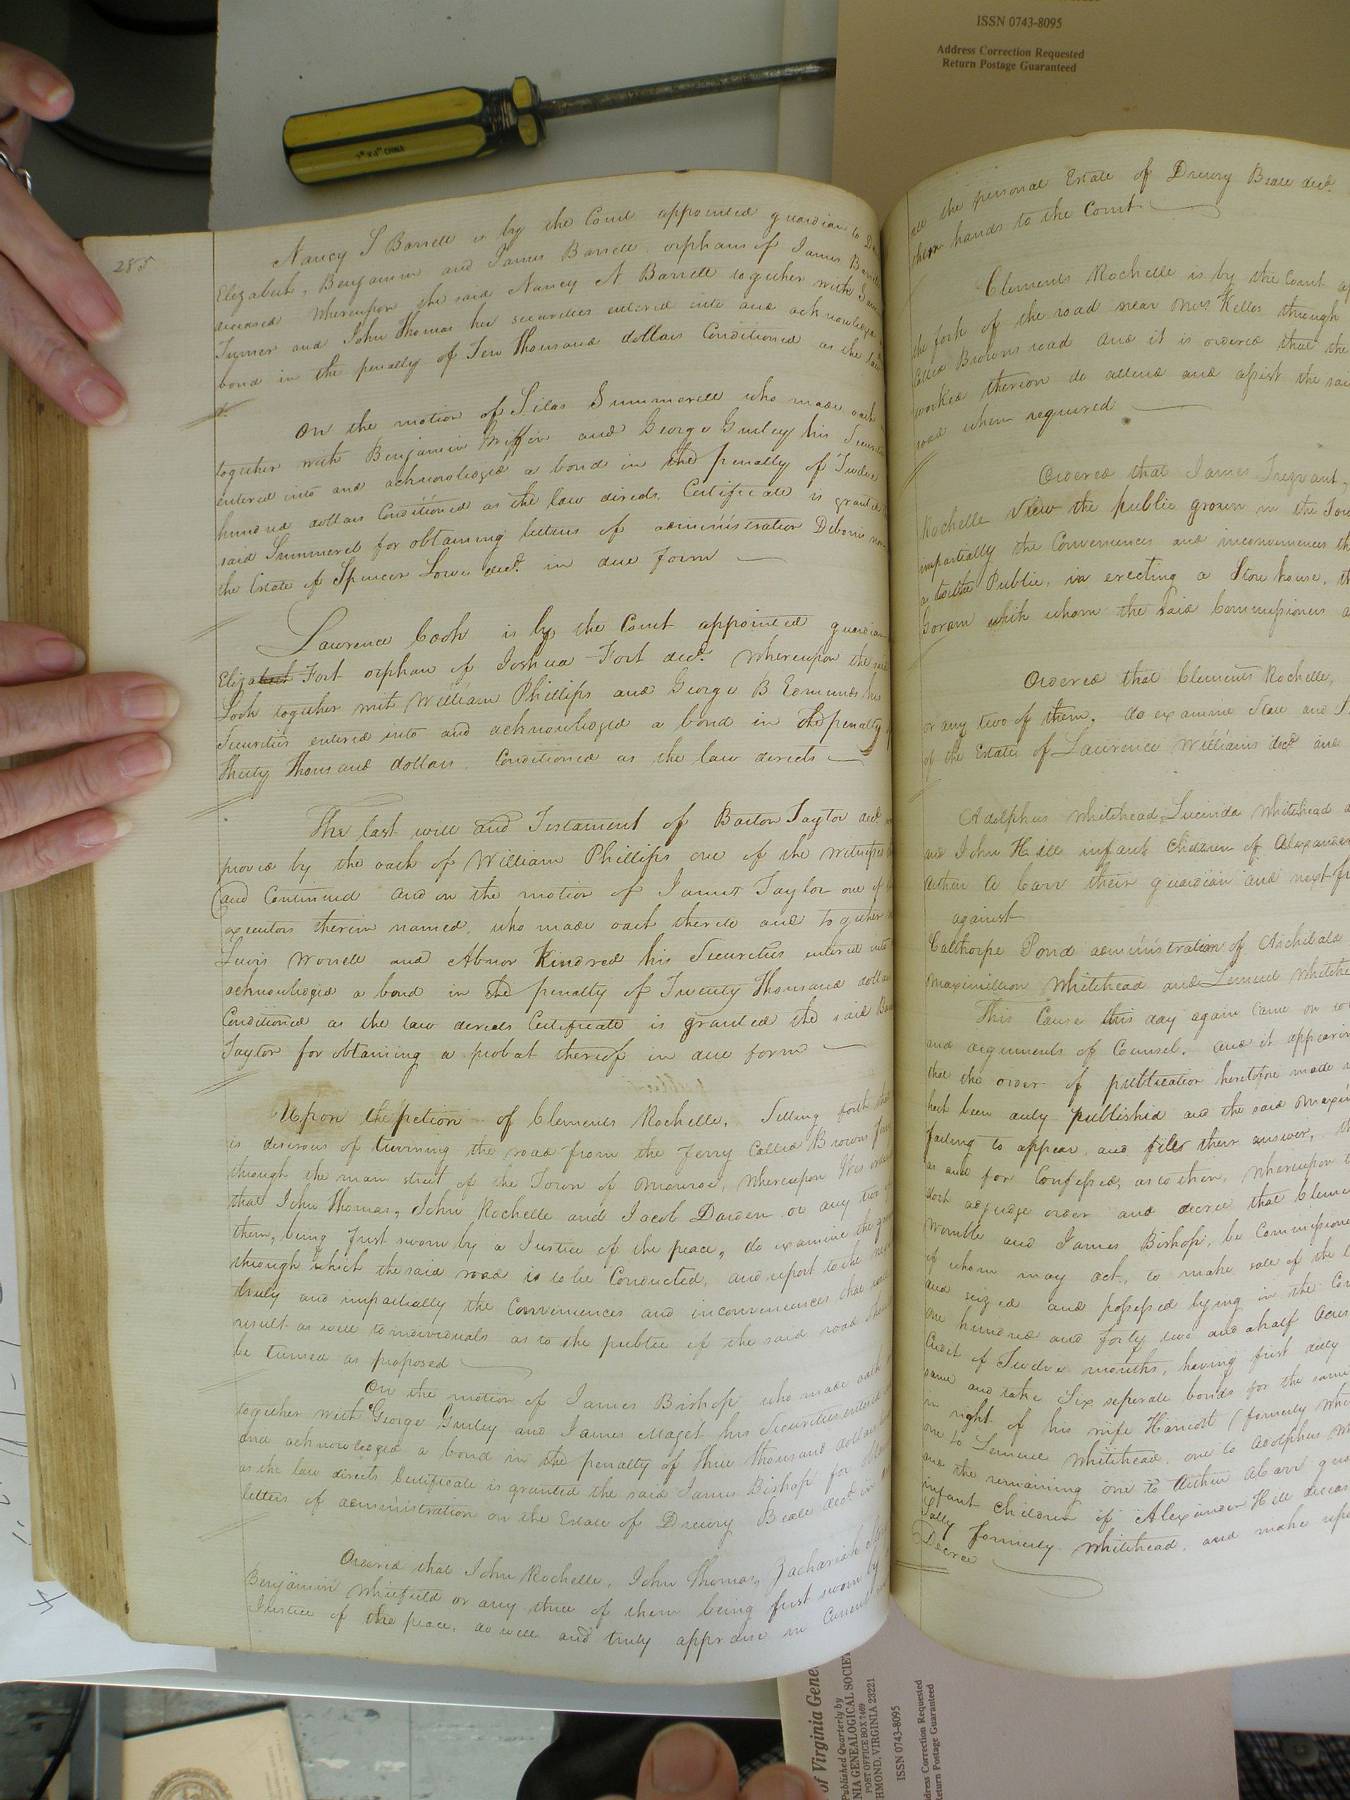 ISSN 0743-8095
Address Correction Requested
Return Postage Guaranteed
CHINA
285
Nancy S Barrett is by the Court appointed guardian to
Elizabeth, Benjamin and James Barrett orphans of James
deceased Whereupon the said Nancy N Barrett together with
Turner and John Thomas her securities entered into and acknowledged
bond in the penalty of Ten Thousand dollars Conditioned as the law
On the motion of Silas Summerell who made oath
together with Benjamin Griffin and George Gurley his Securities
entered into and acknowledged a bond in the penalty of Twelve
hundred dollars Conditioned as the law directs, Certificate is granted
said Summerell for obtaining letters of administration Debonis non
the Estate of Spencer Lowe decd. in due form
Lawrence Cook is by the Court appointed guardian
Elizabeth Fort orphan of Joshua Fort decd. Whereupon the said
Cook together with William Phillips and George B Edmunds his
Securities entered into and acknowledged a bond in the penalty
Thirty Thousand dollars. Conditioned as the law directs
The last will and Testament of Barton Taylor decd
proved by the oath of William Phillips one of the witnesses
and Continued and on the motion of James Taylor one of
executors therein named, who made oath thereto and together
Lewis Worrell and Abner Kindred his Securities entered into
acknowledged a bond in the penalty of Twenty Thousand dollars
Conditioned as the law directs Certificate is granted the said
Taylor for obtaining a probat thereof in due form
Upon the petion of Clements Rochelle, Setting forth that
is desirous of turning the road from the ferry Called Browns ferry
through the main street of the Town of Monroe, Whereupon It is ordered
that John Thomas, John Rochelle and Jacob Darden or any two of
them, being first sworn by a Justice of the peace, do examine the
through which the said road is to be Conducted, and report to the
truly and impartially the Conveniences and inconveniences that
result as well to individuals as to the public if the said road should
be turned as proposed
On the motion of James Bishop who made oath
together with George Gurley and James Maget his Securities entered
and acknowledged a bond in the penalty of three thousand dollars
as the law directs Certificate is granted the said James Bishop for
letters of administration on the Estate of Drewry Beale decd. in
Ordered that John Rochelle, John Thomas, Zachariah
Benjamin Whitfield or any three of them being first sworn by
Justice of the peace, do well and truly appraise in Current
all the personal Estate of Drewry Beale decd.
their hands to the Court
Clements Rochelle is by the Court
the fork of the road near Mrs Kellos through
Called Browns road and it is ordered that the
worked thereon do attend and assist the said
road when required
Ordered that James Trezvant,
Rochelle View the public ground in the Town
impartially the Conveniences and inconveniences
a to the Public, in erecting a Store house,
Goram which whom the said Commissioners
Ordered that Clements Rochelle,
or any two of them, do examine State and
of the Estate of Lawrence Williams decd and
Adolphus Whitehead, Lucinda Whitehead
and John Hill infant Children of Alexander
Arthur A Carr their guardian and next
against
Calthorpe Pond administration of Archibald
Maximillion Whitehead and Lemuel
This Cause this day again Came on
and arguments of Counsel, and it appearing
that the order of publication heretofore made
hath been duly published and the said
failing to appear and file their answer,
as and for Confessed, as to them, Whereupon
doth adjudge order and decree that
Womble and James Bishop, be Commissioners
of whom may act, to make sale of the
and seized and possessed lying in the
one hundred and forty two and a half Acres
Credit of Twelve months, having first duly
same and take Six seperate bonds for the same
in right of his wife Harriott (formerly
one to Lemuel Whitehead, one to Adolphus
and the remaining one to Arthur A Carr
infant Children of Alexander Hill
Sally formerly Whitehead, and make
Decree
of Virginia
Published Quarterly by
GENEALOGICAL SOCIETY
POST OFFICE BOX 7469
VIRGINIA 23221
ISSN 0743-8095
Address Correction Requested
Return Postage Guaranteed